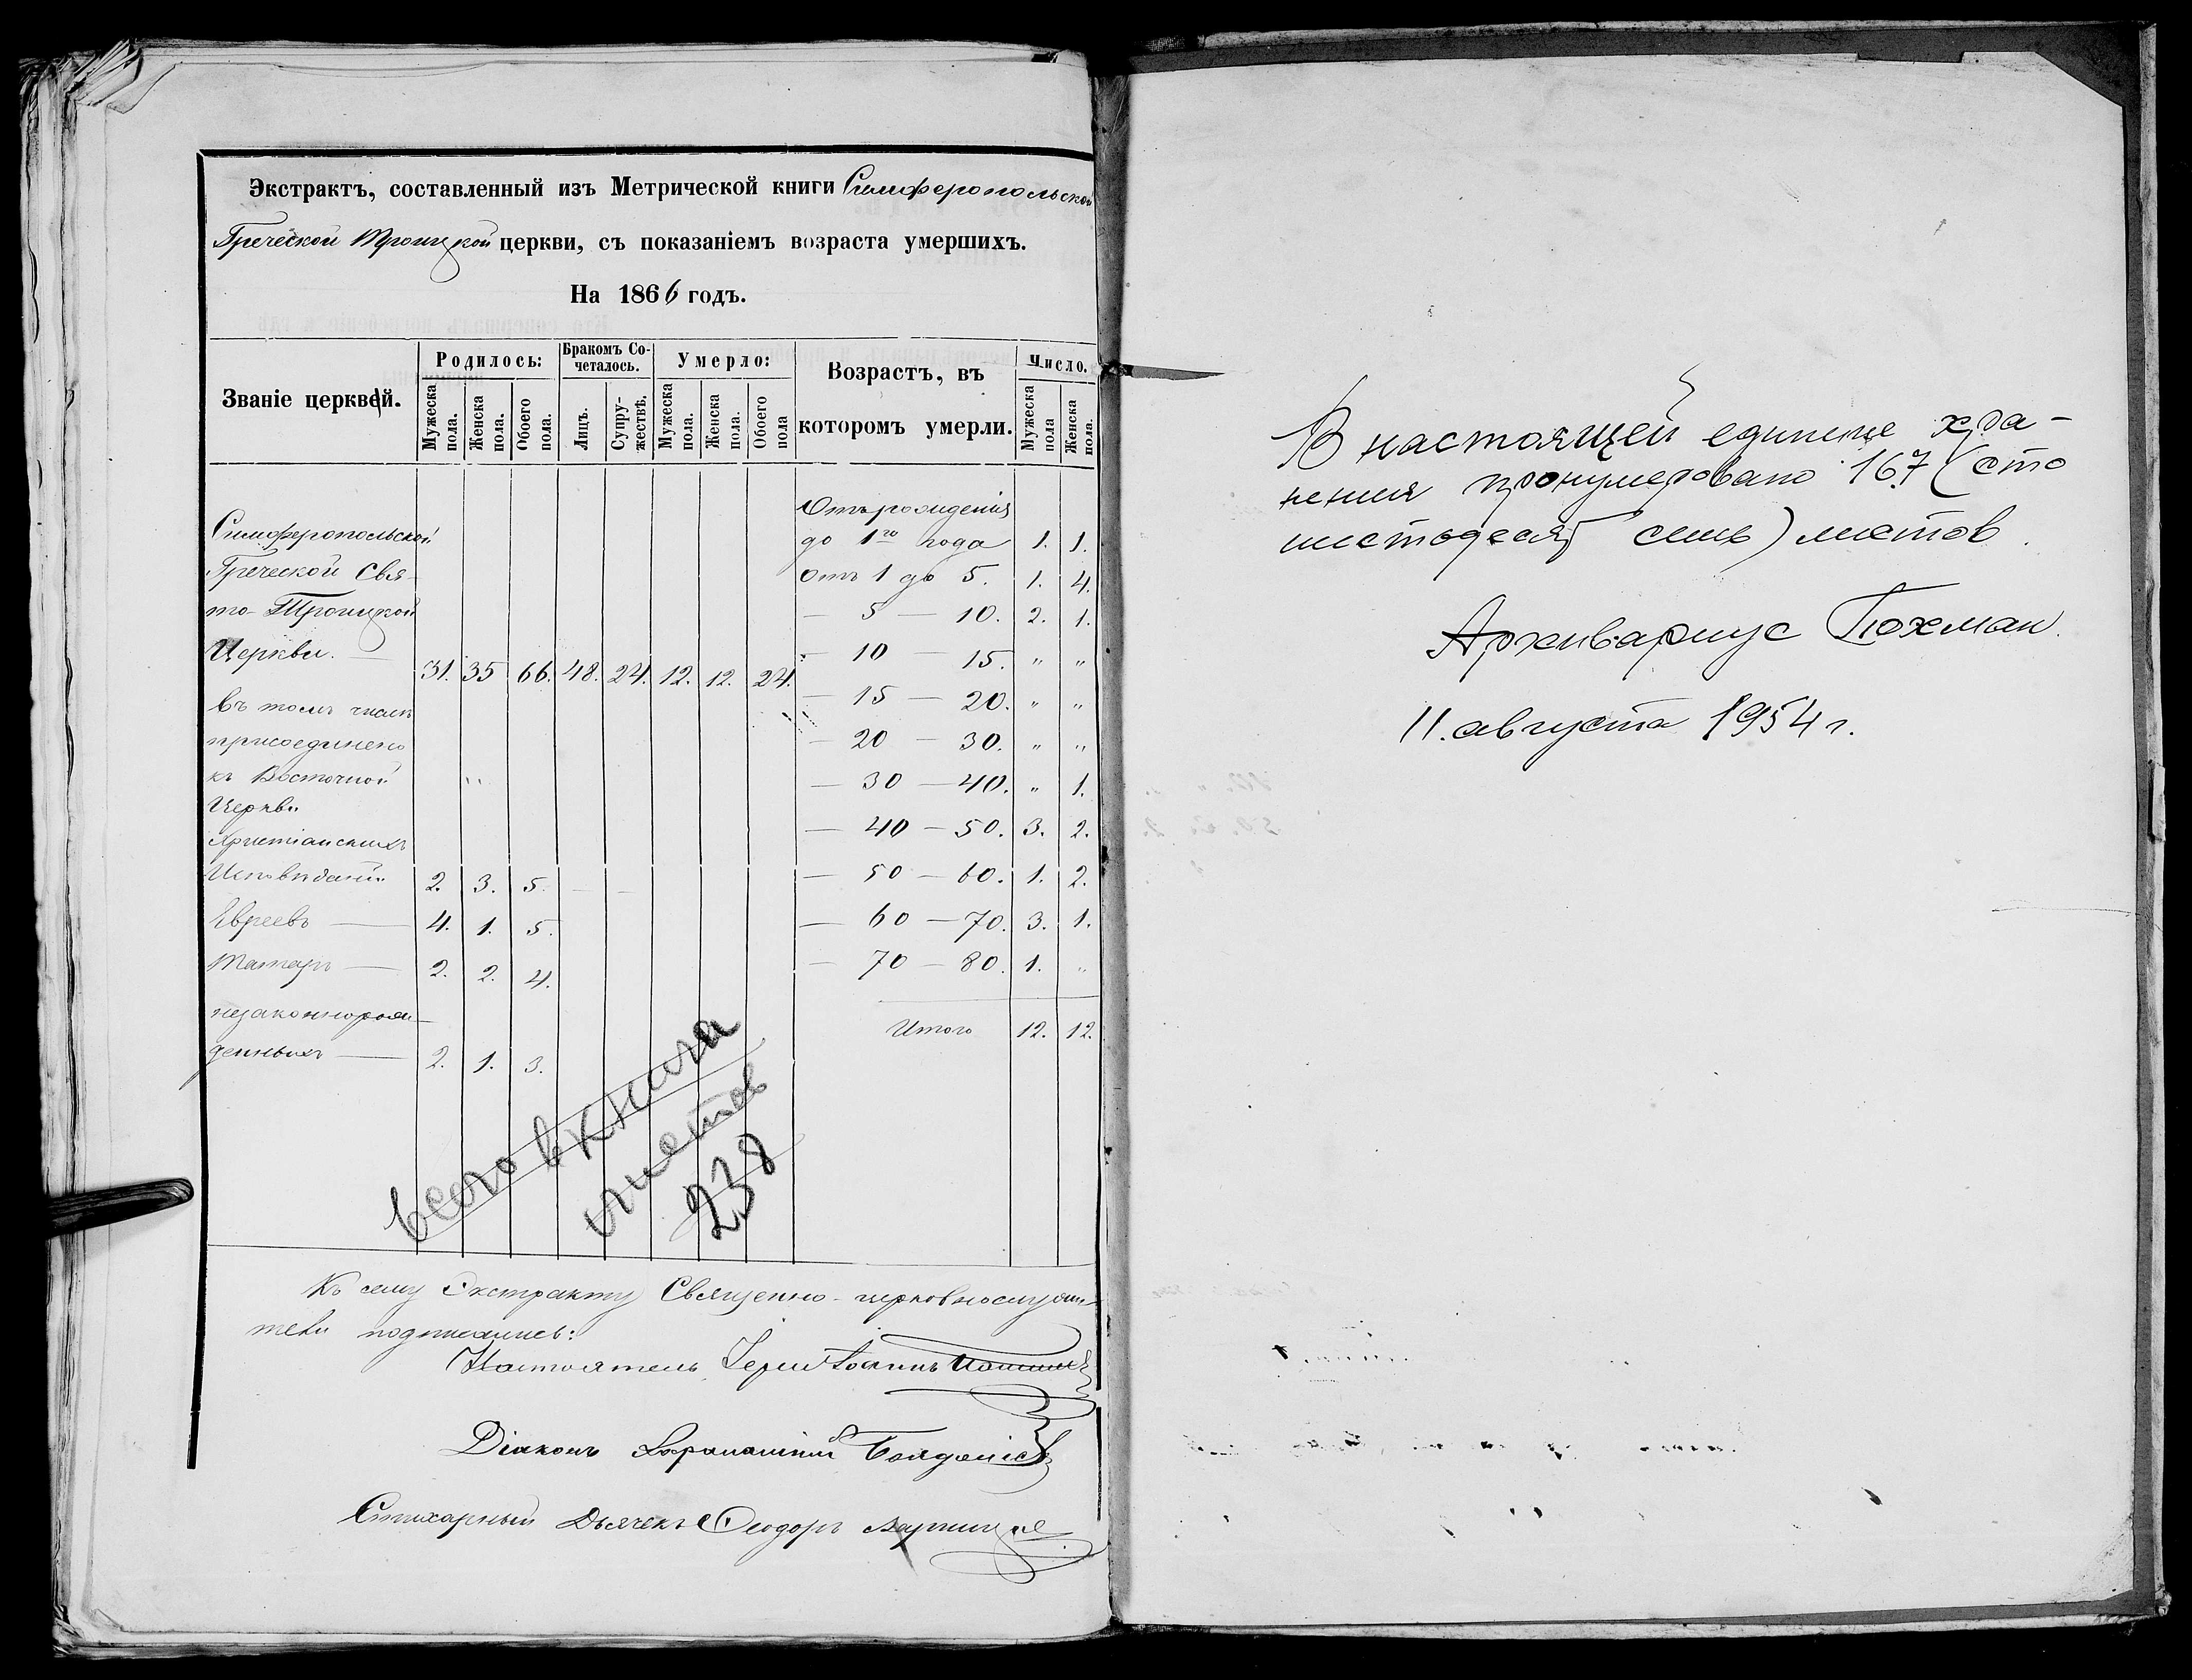 Экстрактъ, составленный изъ Метрической книги Симферопольской
Греческой Троицкой церкви, съ показаніемъ возраста умершихъ.
На 1866 годъ.
Званіе церквей. Родилось: Бракомъ Со-четалось. Умерло: Возрастъ, въ которомъ умерли. Число.
Мужеска пола. Женска пола. Обоего пола. Лицъ. Супру-жествъ. Мужеска пола. Женска пола. Обоего пола Мужеска пола Женска пола.
Симферопольской
Греческой Свя-
то-Троицкой
Церкви. — 31. 35 66. 48. 24. 12. 12. 24.
въ томъ числѣ
присоединено
къ Восточной
Церкви
Христіанскихъ
Исповѣданій 2. 3. 5. — —
Евреевъ — 4. 1. 5.
Татаръ — 2. 2. 4.
незаконнорож-
денныхъ — 2. 1. 3.
Отъ рожденія
до 1го года 1. 1.
Отъ 1 до 5. 1. 4.
— 5 — 10. 2. 1.
— 10 — 15. " "
— 15 — 20. " "
— 20 — 30. " "
— 30 — 40. " 1.
— 40 — 50. 3. 2.
— 50 — 60. 1. 2.
— 60 — 70. 3. 1.
— 70 — 80. 1. "
Итого 12. 12.
всего в книга
листов
238
Къ сему Экстракту Священно-церковнослужи-
тели подписались:
Настоятель, Іерей Іоаннъ
Діаконъ
Стихарный Дьячекъ Ѳеодоръ
В настоящей единице хра-
нения пронумеровано 167 (сто
шестьдесят семь) листов.
Архивариус Тохман.
11. августа 1954 г.